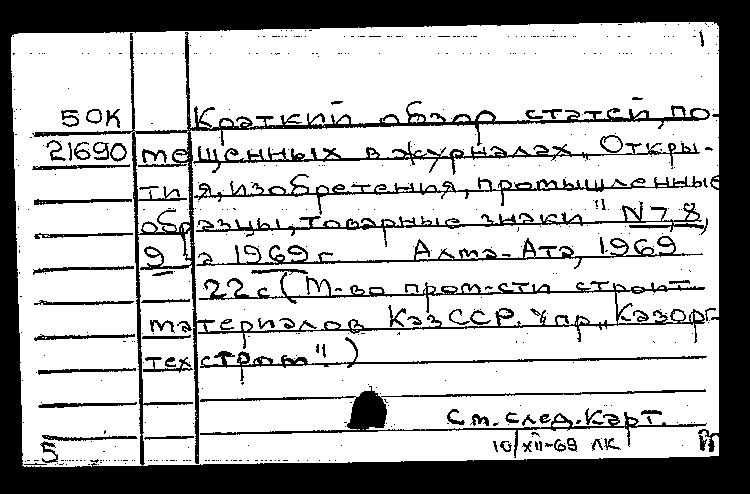 1
50К Краткий обзор статей, по-
21690 мещенных в журналах „Откры-
тия, изобретения, промышленные
образцы, товарные знаки" N 7, 8,
9 за 1969 г. Алма-Ата, 1969
22 с (М-во пром-сти строит
материалов КазССР. Упр „Казорг-
техстром")
См. след. карт.
5 10/XII-69 ЛК